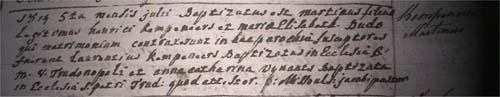 1819 5ta mensis julii Baptizatus est martinus filius
Legitimus henrici Kempeneers et mariæ Elisabeth. Budo
qui matrimonium contraxerunt in hac parochia susceptores
fuerunt laurentius Kempeneers Baptizatus in Ecclesia B.
m. v. Trudonopoli et anna catharina Vynants Baptizata
in Ecclesia S. petri Trud: quod attestor. pastor
Kempeneers
Martinus